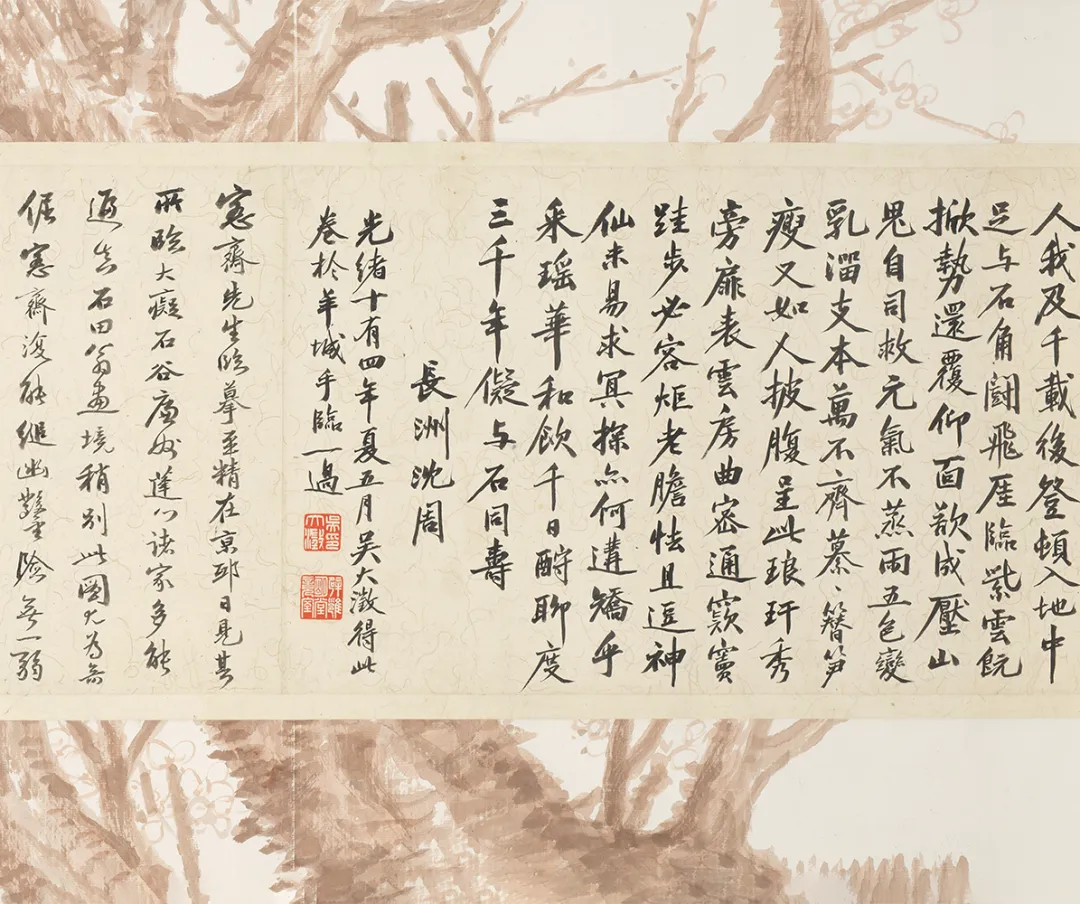 人我及千載後登頓入地中
足与石角鬭飛厓臨紫雲飫
掀勢還覆仰面欲成壓山
鬼自司救元氣不蒸雨五色變
乳溜支本萬不齊纂〻簪笋
瘦又如人披腹呈此琅玕秀
旁扉表雲房曲密通窾竇
跬步必容炬老膽怯且逗神
仙未易求冥探亦何遘矯乎
采瑤華和飲千日酎聊度
三千年儗与石同壽
長洲沈周
光緒十有四年夏五月吳大澂得此
卷於羊城手臨一過
愙齋先生臨摹至精在京邸日見其
所臨大癡石谷廉州蓮心諸家多能
逼真石田翁畫境稍別此圖尤為
倔愙齋復能縋幽鑿險無一弱